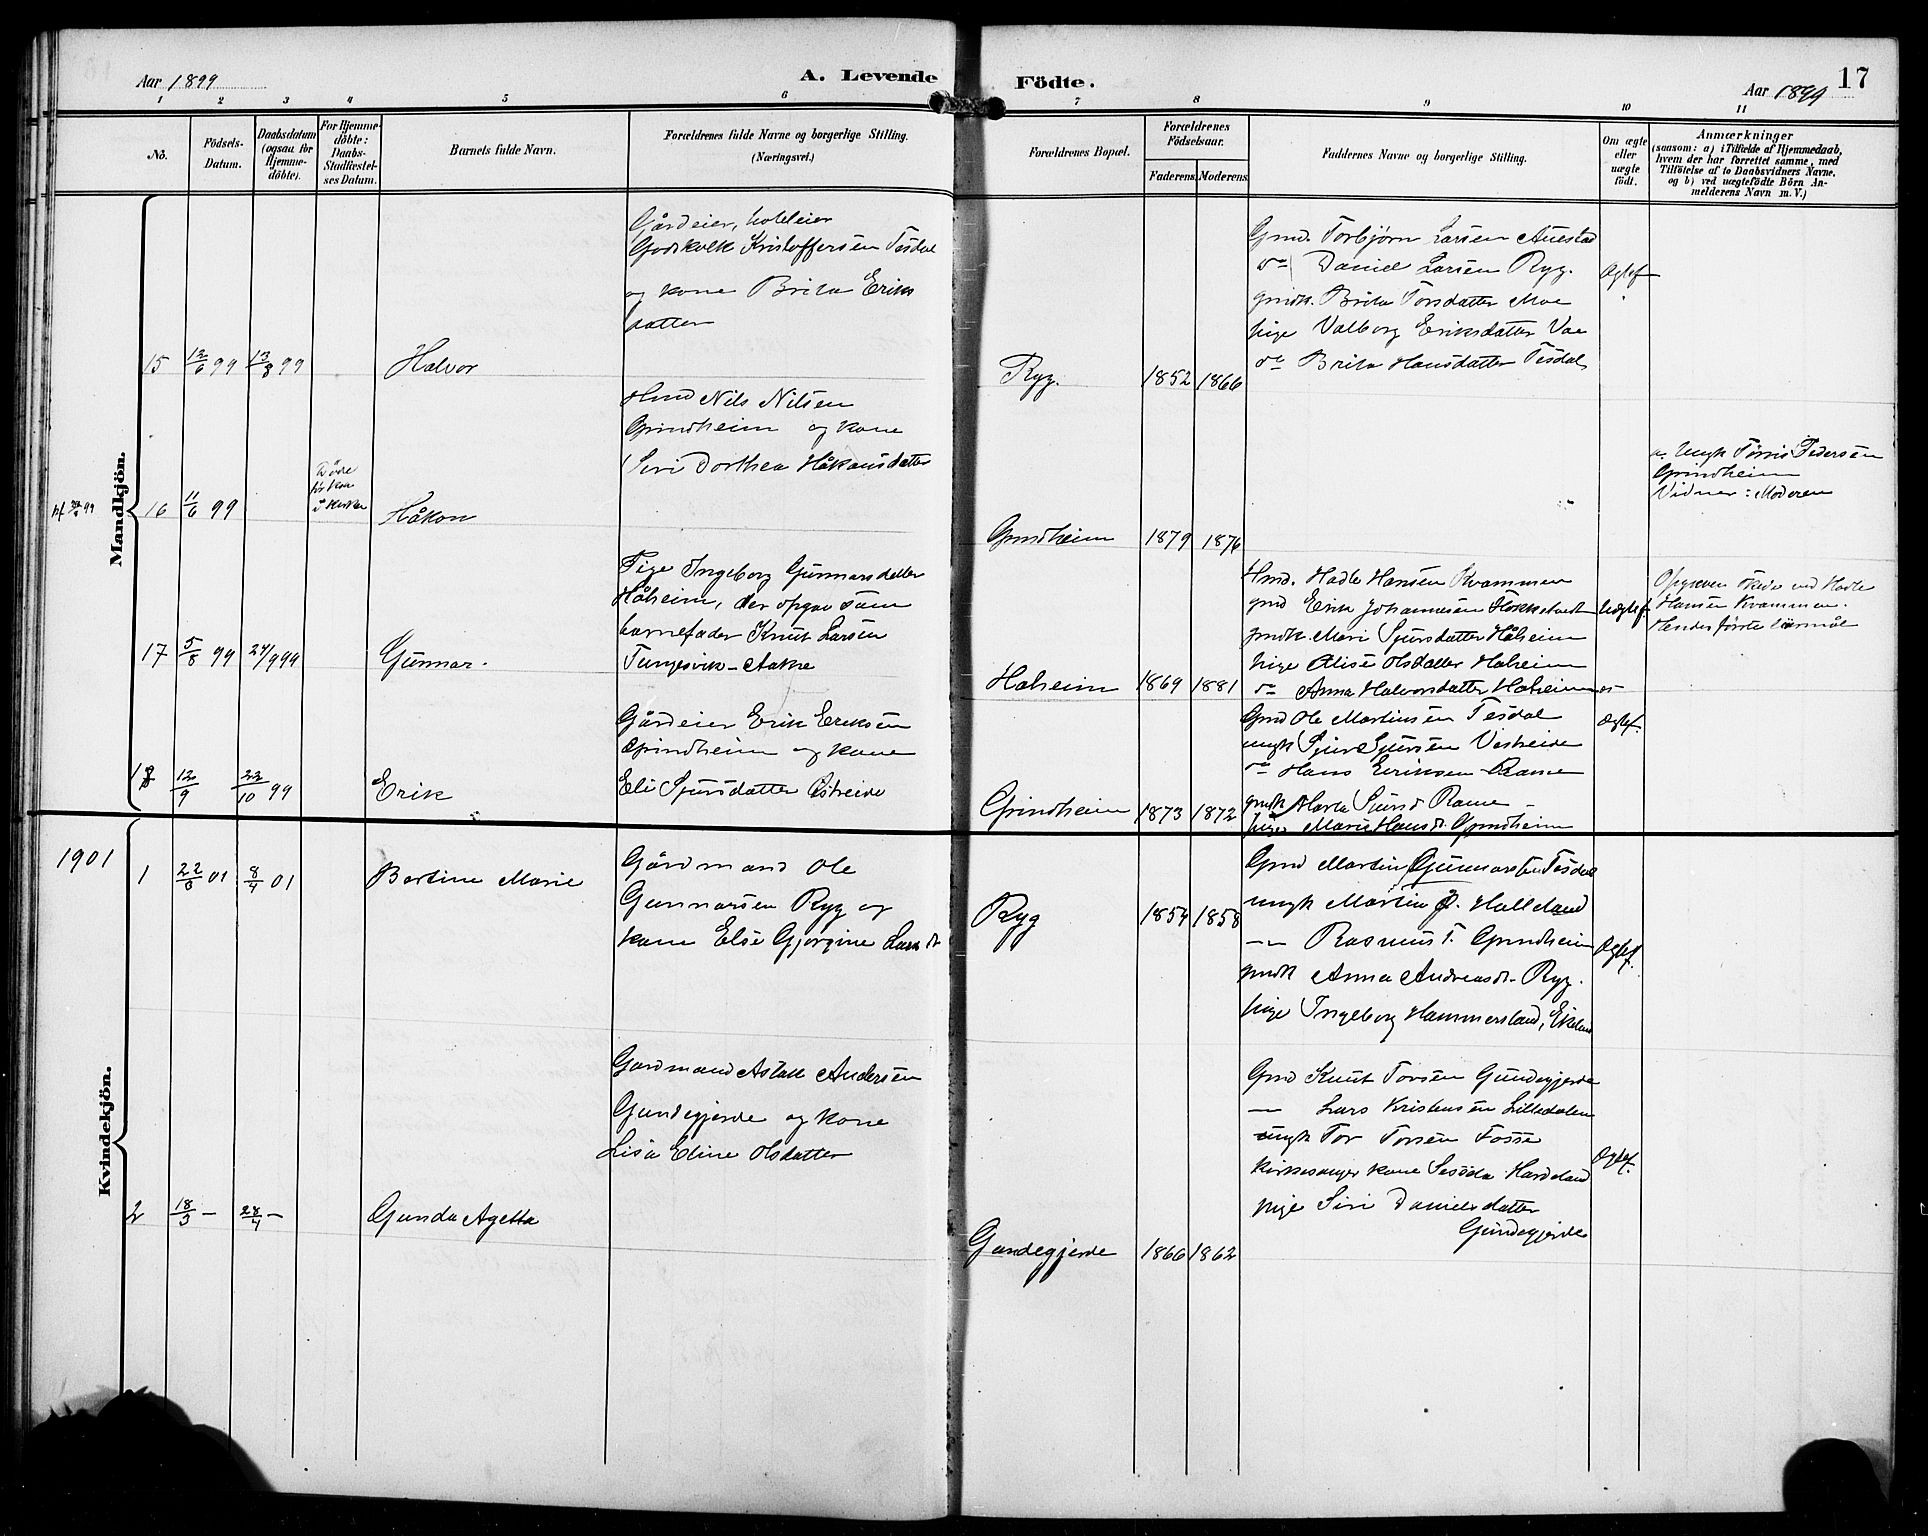 Aar 1899
A. Levende
Födte.
Aar 1899
17
1 2 3 4 5 6 7 8 9 10 11
No.
Födsels-
Datum.
Daabsdatum
(ogsaa for
Hjemme-
döbte).
For Hjemme-
döbte:
Daabs-
Stadfæstel-
ses Datum.
Barnets fulde Navn.
Forældrenes fulde Navne og borgerlige Stilling.
(Næringsvei.)
Forældrenes Bopæl.
Forældrenes
Födselsaar.
Faderens. Moderens.
Faddernes Navne og borgerlige Stilling.
Om ægte
eller
uægte
födt.
Anmærkninger
(saasom: a) i Tilfælde af Hjemmedaab,
hvem der har forrettet samme, med
Tilföielse af to Daabsvidners Navne,
og b) ved uægtefödte Börn An-
melderens Navn m. V.)
Mandkjön.
15 12/6 99 13/8 99
Halvor
Gårdeier, hoteleier
Godskalk Kristoffersen Tesdal
og kone Brita Eriks
datter
Ryg. 1852 1866
Gmd. Torbjørn Larsen Auestad
do Daniel Larsen Ryg.
gmdk. Brita Torsdatter Moe
pige Valborg Eriksdatter Vae
do Brita Hansdatter Tesdal
Ægtef
16 11/6 99
Døde
før kom
i kirken
Håkon
Hmd Nils Nilsen
Grindheim og kone
Siri Dorthea Håkonsdatter
Grindheim 1879 1876
a. Ungk Tørris Pedersen
Grindheim
Vidner: Moderen
17 5/8 99 24/9 99
Gunnar.
Pige Ingeborg Gunnarsdatter
Håheim, der opgav som
barnefader Knut Larsen
Tungesvik-Aakre
Haheim 1869 1881
Hmd. Hadle Hansen Kvammen
gmd Erik Johannesen
gmdk. Mari Sjursdatter Håheim
pige Alise Olsdatter Håheim
do Anna Halvorsdatter Håheim
Uægtef.
Opgaven skede ved Hadle
Hansen Kvammen.
Hendes første leiermål
18 12/9 22/10 99
Erik
Gårdeier Erik Eriksen
Grindheim og kone
Eli Sjursdatter Østreide
Grindheim 1873 1872
Gmd Ole Martinsen Tesdal
ungk Sjur Sjursen Vestreide
do Hans Eriksen Rame
gmdk Marta Sjursd Rame
pige Marie Hansd. Grindheim
Ægtef.
Kvindekjön.
1901
1 22/3 01 8/4 01
Bertine Marie
Gårdmand Ole
Gunnarsen Ryg og
kone Else Gjorgine Larsd
Ryg 1854 1858
Gmd Martin Gunnarsten Tesdal
ungk Martin J. Halleland
— Rasmus T. Grindheim
gmdk Anna Andreasd. Ryg.
pige Ingeborg Hammersland,
Ægtef.
2 18/3 — 28/4 —
Gunda Agetta
Gardmand Aslak Andersen
Gundegjerde og kone
Lisa Eline Olsdatter
Gundegjerde 1866 1862
Gmd Knut Torsen Gundegjerde
— Lars Kristensen Lilledalen
ungk Tor Torsen Fosse
kirkesanger kone Hardeland
pige Siri Danielsdatter
Gundegjerde
Ægtef.